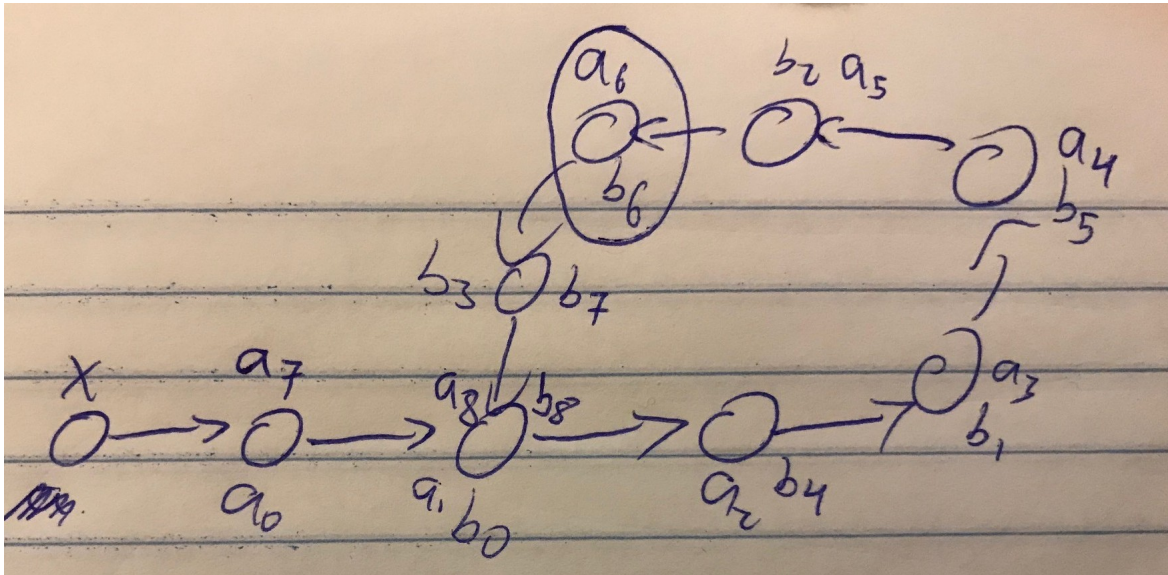 a₆
b₂ a₅
a₄
b₆
b₅
b₃
b₇
X
a₇
a₈
b₈
a₃
b₁
a₀
a₁
b₀
a₂
b₄